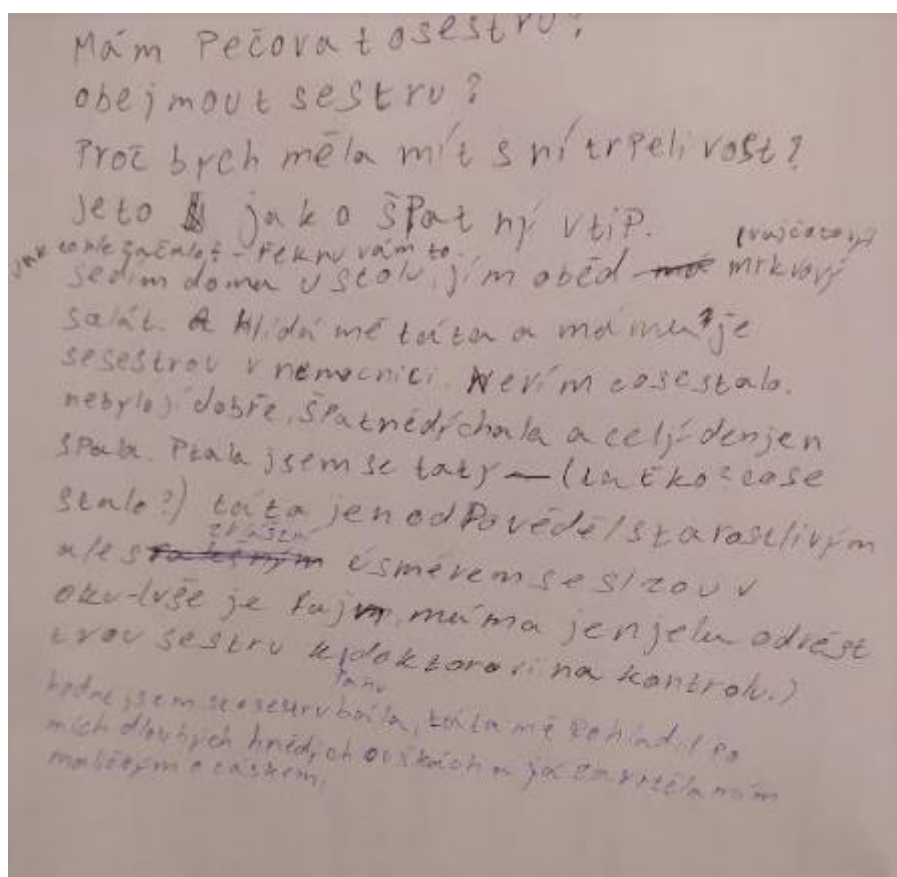 Mám Pečovat o sestru?
obejmout sestru?
Proč bych měla mít s ní trpelivost?
Jeto jako špatný vtip.
jak to vle začalo? - řeknu vám to.
sedím doma u stolu, jím oběd mrkvový
salát. A hlídá mě táta a máma je
se sestrou v nemocnici. Nevím co se stalo.
nebylo jí dobře, špatně dýchala a celý den jen
spala. Ptala jsem se taty — (taťko? co se
stalo?) táta jen odpověděl starostlivým
ale zvláštní úsměvem se slzou v
oku - (vše je fajn, máma jen jela odvést
tvou sestru k doktorovi na kontrolu.)
hodně jsem se o sestru bála, táta mě pohladil po
mích dlouhých hnědých ouškách a já zavrtěla mím
ocáskem,